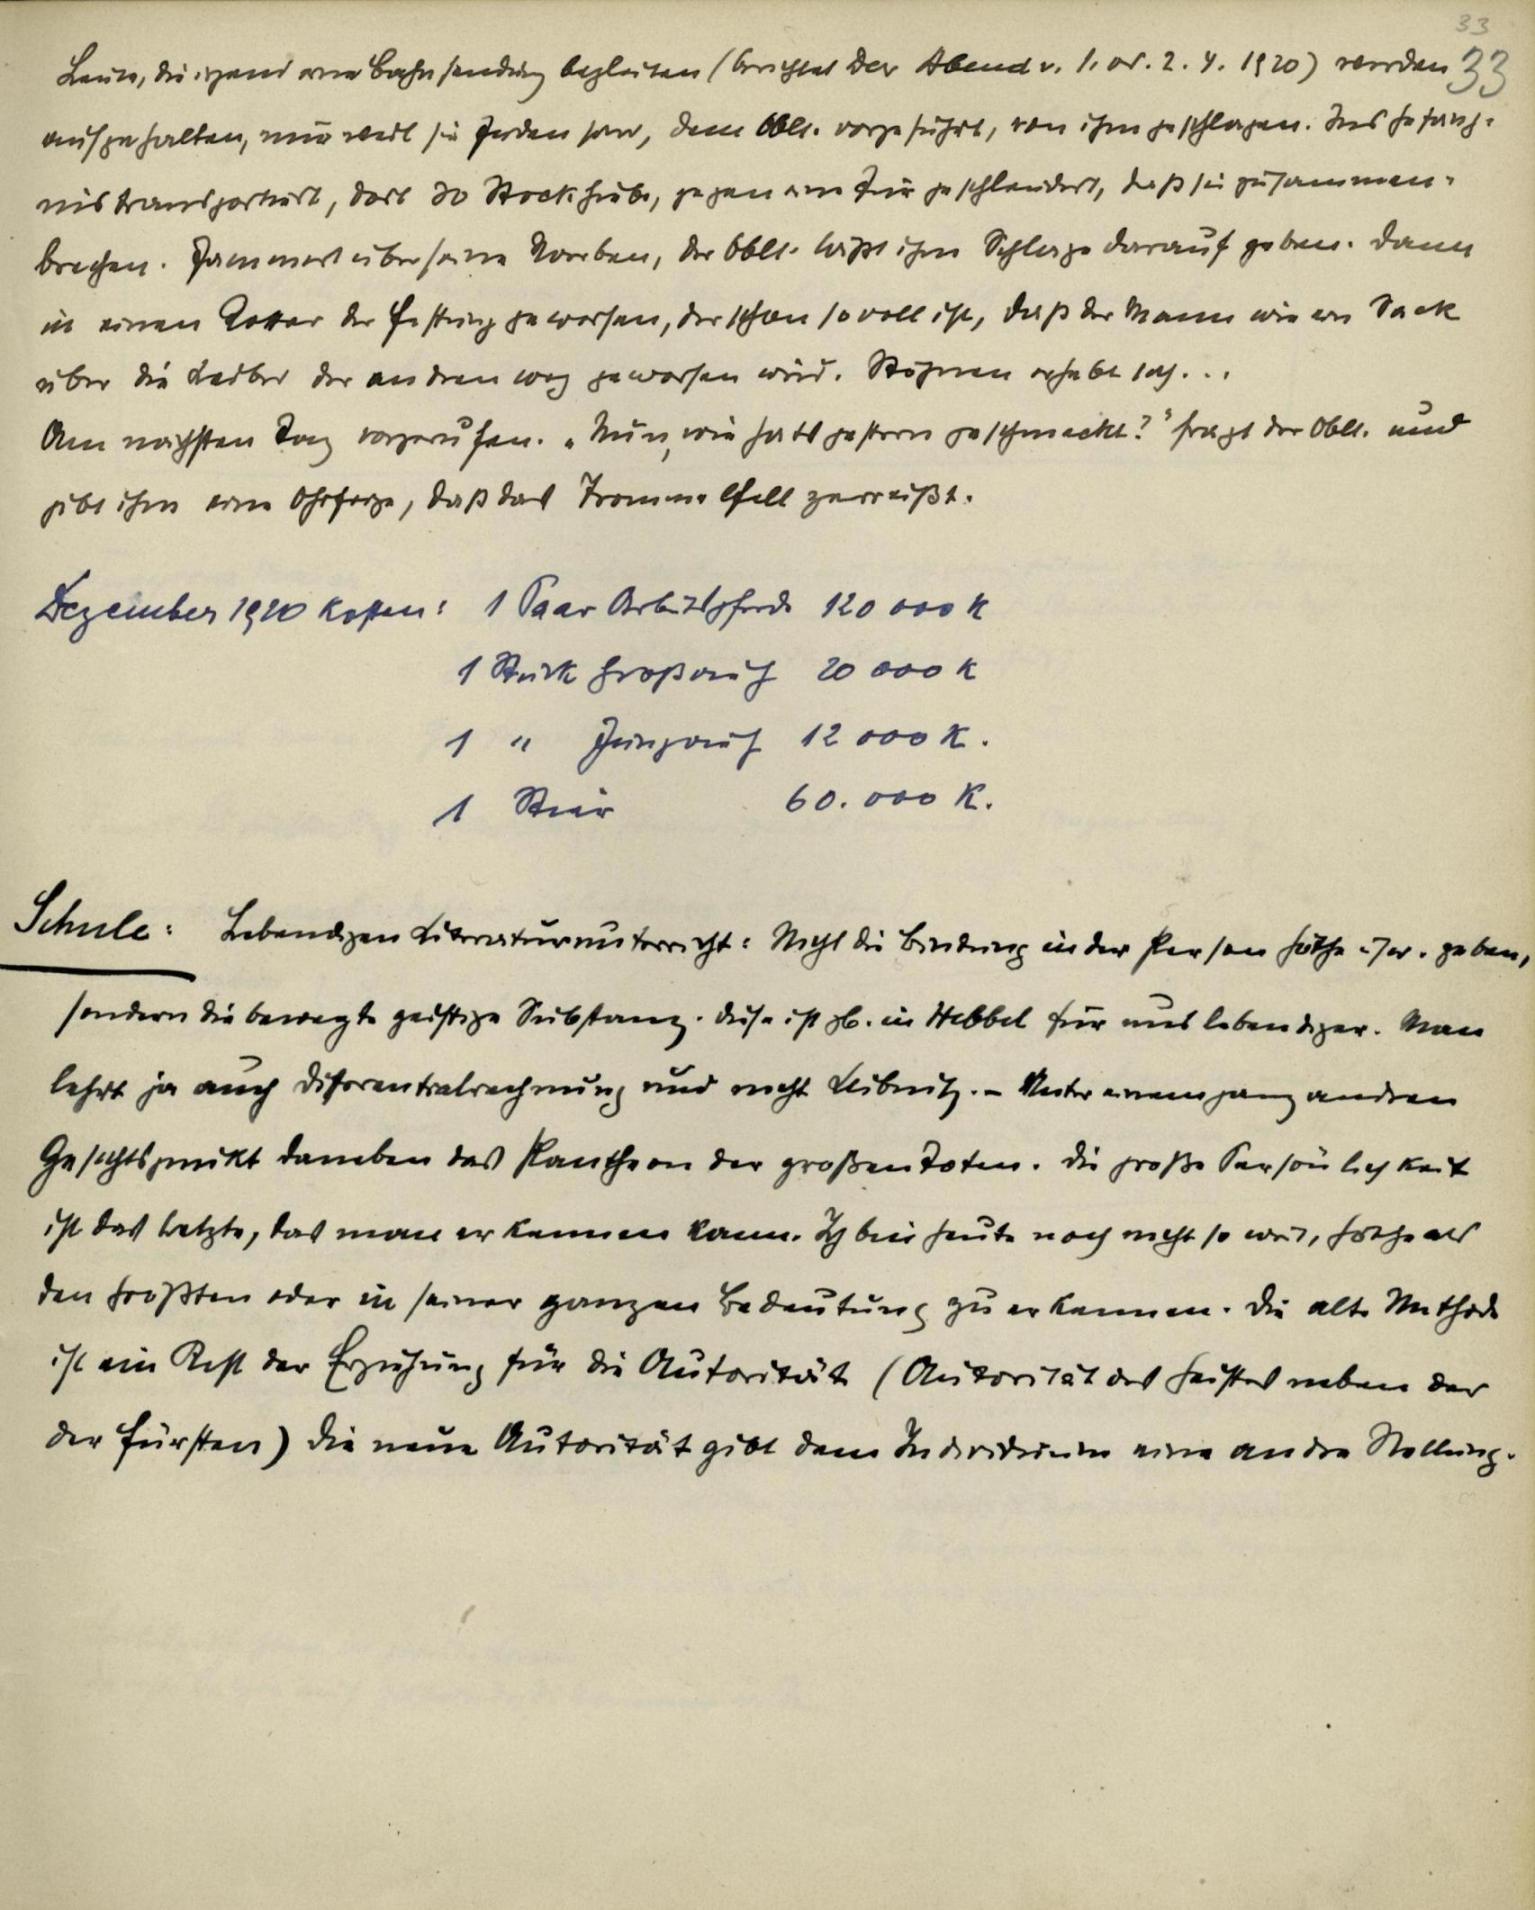 33
33
Leute, die irgend eine Bahnsendung begleiten (berichtet Der Abend v. 1. od. 2. 4. 1920) werden
aufgehalten, nur weil sie Juden sind, dem Oblt. vorgeführt, von ihm geschlagen. Ins Gefäng-
nis transportiert, dort 30 Stockhiebe, gegen eine Tür geschleudert, daß sie zusammen-
brechen. Jammert über seine Narben, der Oblt. läßt ihm Schläge darauf geben. Dann
in einen Keller der Festung geworfen, der schon so voll ist, daß der Mann wie ein Sack
über die Leiber der andren weg geworfen wird. Stöhnen erhebt sich...
Am nächsten Tag vorgerufen. „Nun, wie hats gestern geschmeckt?" fragt der Oblt. und
gibt ihm eine Ohrfeige, daß das Trommelfell zerreißt.
Dezember 1920 kosten: 1 Paar Arbeitspferde 120 000 K
1 Stück Großvieh 20 000 K
1 " Jungvieh 12 000 K.
1 Stier 60.000 K.
Schule: Lebendigen Literaturunterricht: Nicht die Bindung in der Person Göthe usw. geben,
sondern die bewegte geistige Substanz. Diese ist zb. in Hebbel für uns lebendiger. Man
lehrt ja auch Differentialrechnung und nicht Leibnitz. – Unter einem ganz andren
Gesichtspunkt daneben das Pantheon der großen Toten. Die große Persönlichkeit
ist das letzte, das man erkennen kann. Ich bin heute noch nicht so weit, Göthe als
den Größten oder in seiner ganzen Bedeutung zu erkennen. Die alte Methode
ist ein Rest der Erziehung für die Autorität (Autorität des Geistes neben der
der Fürsten) Die neue Autorität gibt dem Individuum eine andre Stellung.